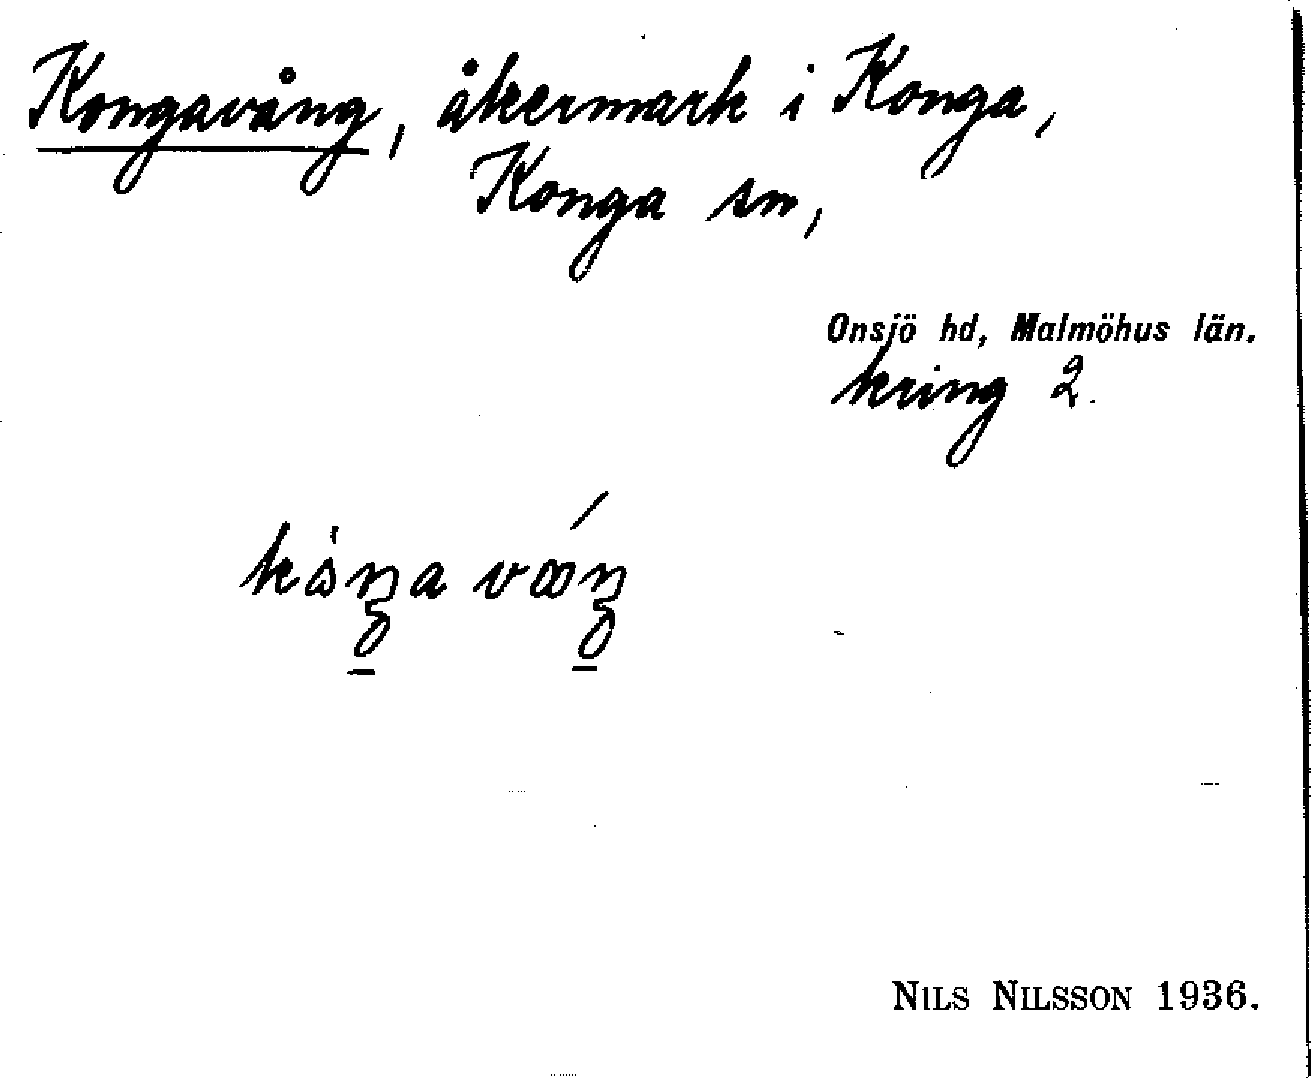 Kongavång, åkermark i Konga,
Konga sn,
Onsjö hd, Malmöhus län.
kring 2.
NILS NILSSON 1936.